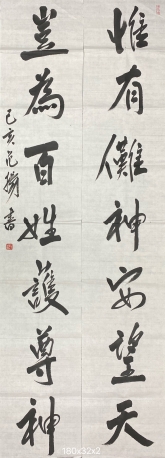 惟有儺神安望天
豈為百姓護尊神
己亥 書
160x32x2